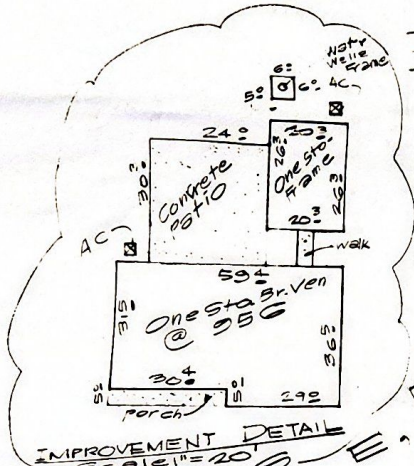 Water
Well &
Frame
6º
5º
6º
AC
24º
20³
One Sto.
Frame
26³
26³
20³
30²
Concrete
Patio
AC
walk
59⁴
One Sto Br. Ven
@ 956
31⁵
36⁵
30⁴
5º
5º
29º
porch
IMPROVEMENT DETAIL
Scale 1"=20'